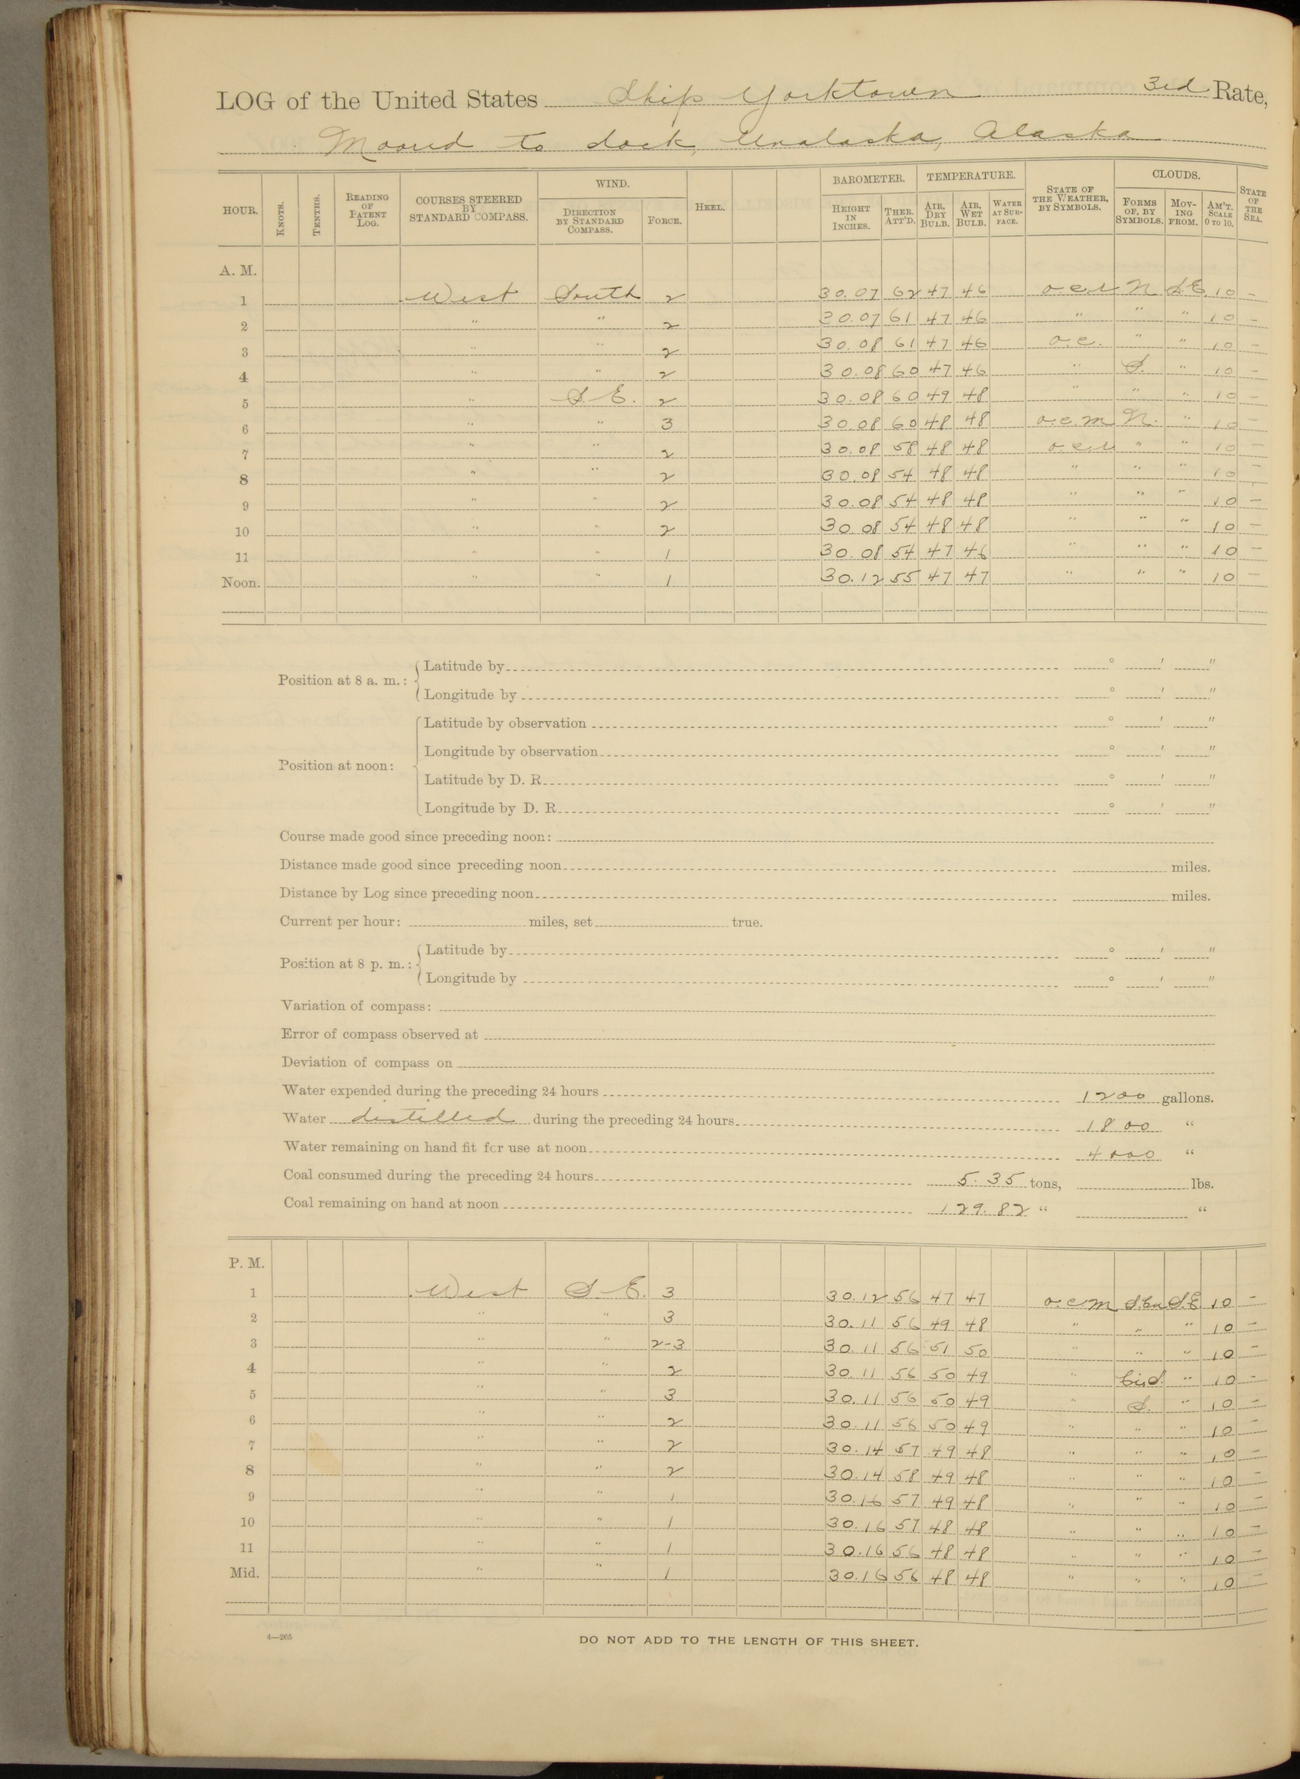 LOG of the United States Ship Yorktown 3rd Rate,
Moored to dock, Unalaska, Alaska
HOUR. KNOTS. TENTHS. READING OF PATENT LOG. COURSES STEERED BY STANDARD COMPASS. WIND. DIRECTION BY STANDARD COMPASS. FORCE. HEEL. BAROMETER. HEIGHT IN INCHES. THER. ATT'D. TEMPERATURE. AIR, DRY BULB. AIR, WET BULB. WATER AT SURFACE. STATE OF THE WEATHER, BY SYMBOLS. CLOUDS. FORMS OF, BY SYMBOLS. MOVING FROM. AM'T. SCALE 0 TO 10. STATE OF THE SEA.
A. M.
1 West South 2 30.07 62 47 46 o.c.u N S.E. 10 -
2 " " 2 30.07 61 47 46 " " " 10 -
3 " " 2 30.08 61 47 46 o.c. " " 10 -
4 " " 2 30.08 60 47 46 " S. " 10 -
5 " S.E. 2 30.08 60 49 48 " " " 10 -
6 " " 3 30.08 60 48 48 o.c.m N. " 10 -
7 " " 2 30.08 58 48 48 o.c.u " " 10 -
8 " " 2 30.08 54 48 48 " " " 10 -
9 " " 2 30.08 54 48 48 " " " 10 -
10 " " 2 30.08 54 48 48 " " " 10 -
11 " " 1 30.08 54 47 46 " " " 10 -
Noon. " " 1 30.12 55 47 47 " " " 10 -
Position at 8 a. m.: Latitude by ° ′ ″
Longitude by ° ′ ″
Position at noon: Latitude by observation ° ′ ″
Longitude by observation ° ′ ″
Latitude by D. R. ° ′ ″
Longitude by D. R. ° ′ ″
Course made good since preceding noon:
Distance made good since preceding noon miles.
Distance by Log since preceding noon miles.
Current per hour: miles, set true.
Position at 8 p. m.: Latitude by ° ′ ″
Longitude by ° ′ ″
Variation of compass:
Error of compass observed at
Deviation of compass on
Water expended during the preceding 24 hours 1200 gallons.
Water distilled during the preceding 24 hours 1800 "
Water remaining on hand fit for use at noon 4000 "
Coal consumed during the preceding 24 hours 5.35 tons, lbs.
Coal remaining on hand at noon 129.82 " "
P. M.
1 West S.E. 3 30.12 56 47 47 o.c.m S.E. 10 -
2 " " 3 30.11 56 49 48 " " " 10 -
3 " " 2-3 30.11 56 51 50 " " " 10 -
4 " " 2 30.11 56 50 49 " " 10 -
5 " " 3 30.11 56 50 49 " S. " 10 -
6 " " 2 30.11 56 50 49 " " " 10 -
7 " " 2 30.14 57 49 48 " " " 10 -
8 " " 2 30.14 58 49 48 " " " 10 -
9 " " 1 30.16 57 49 48 " " " 10 -
10 " " 1 30.16 57 48 48 " " " 10 -
11 " " 1 30.16 56 48 48 " " " 10 -
Mid. " " 1 30.16 56 48 48 " " " 10 -
4—265
DO NOT ADD TO THE LENGTH OF THIS SHEET.